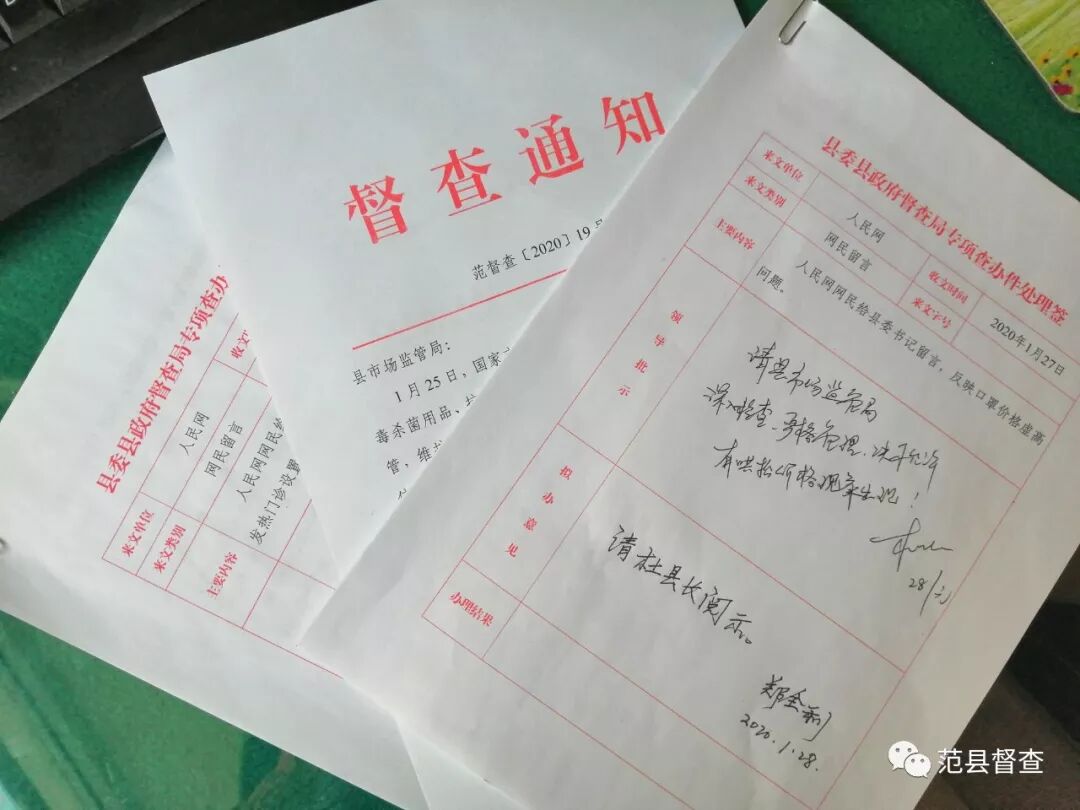 督查通知
范督查〔2020〕19号
县市场监管局：
1月25日，国家
毒杀菌用品、
管，维
县委县政府督查局专项查办
来文单位
人民网
收文
来文类别
网民留言
主要内容
人民网网民给
发热门诊设置
县委县政府督查局专项查办件处理签
来文单位
人民网
收文时间
2020年1月27日
来文类别
网民留言
来文字号
主要内容
人民网网民给县委书记留言，反映口罩价格虚高
问题。
领导批示
请县市场监管局
深入检查、严格管理、决不允许
有哄抬价格现象出现！
28/元
拟办意见
请杜县长阅示。
郑全利
2020.1.28.
办理结果
范县督查